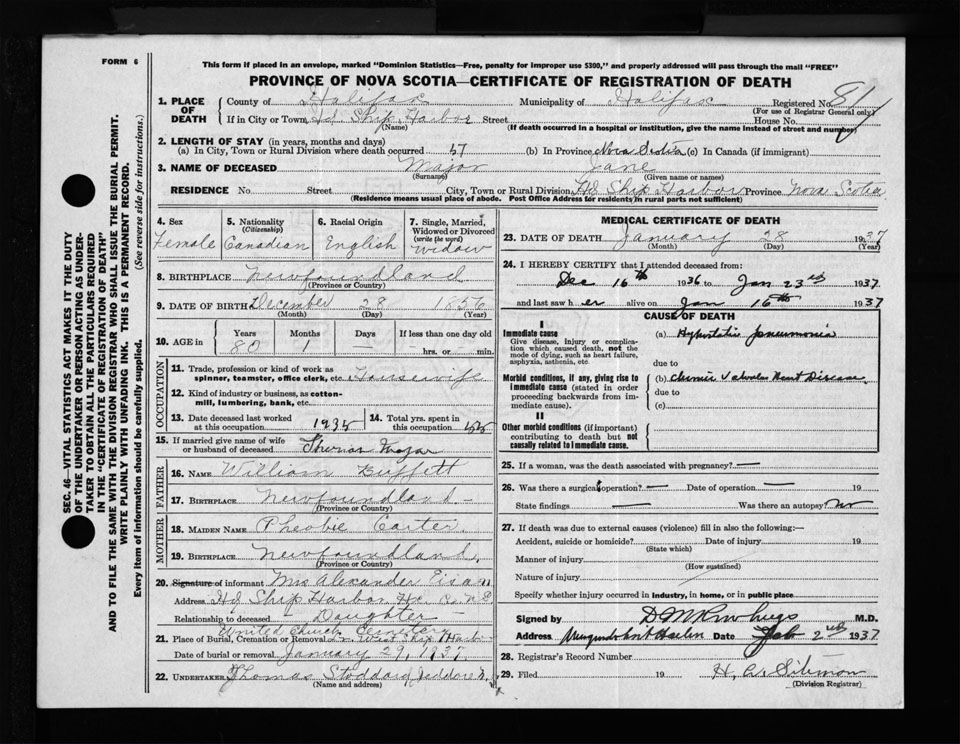 FORM 6
This form if placed in an envelope, marked "Dominion Statistics—Free, penalty for improper use $300," and properly addressed will pass through the mail "FREE"
PROVINCE OF NOVA SCOTIA—CERTIFICATE OF REGISTRATION OF DEATH
1. PLACE OF DEATH
County of Halifax Municipality of Halifax Registered No.
(For use of Registrar General only)
If in City or Town, Hd Ship Harbor Street House No.
(Name) (If death occurred in a hospital or institution, give the name instead of street and number)
2. LENGTH OF STAY (in years, months and days)
(a) In City, Town or Rural Division where death occurred 57 (b) In Province Nova Scotia (c) In Canada (if immigrant)
3. NAME OF DECEASED Major Jane
(Surname) (Given name or names)
RESIDENCE No. Street City, Town or Rural Division Hd Ship Harbor Province Nova Scotia
(Residence means usual place of abode. Post Office Address for residents in rural parts not sufficient)
4. Sex Female
5. Nationality (Citizenship) Canadian
6. Racial Origin English
7. Single, Married, Widowed or Divorced (write the word) Widow
8. BIRTHPLACE Newfoundland
(Province or Country)
9. DATE OF BIRTH December 28 1856
(Month) (Day) (Year)
10. AGE in Years Months Days If less than one day old
80 1 — hrs. or min.
OCCUPATION
11. Trade, profession or kind of work as spinner, teamster, office clerk, etc. Housewife
12. Kind of industry or business, as cotton-mill, lumbering, bank, etc.
13. Date deceased last worked at this occupation 1935
14. Total yrs. spent in this occupation 55
15. If married give name of wife or husband of deceased Thomas Major
FATHER
16. NAME William Buffett
17. BIRTHPLACE Newfoundland —
(Province or Country)
MOTHER
18. MAIDEN NAME Pheobie Carter
19. BIRTHPLACE Newfoundland.
(Province or Country)
20. Signature of informant Mrs Alexander
Address Hd Ship Harbor Hx
Relationship to deceased Daughter
United Church Cemetery
21. Place of Burial, Cremation or Removal West Ship Harbor
Date of burial or removal January 29, 1937
22. UNDERTAKER Thomas Stoddard
(Name and address)
MEDICAL CERTIFICATE OF DEATH
23. DATE OF DEATH January 28 1937
(Month) (Day)
24. I HEREBY CERTIFY that I attended deceased from:
Dec 16th 1936 to Jan 23rd 1937.
and last saw her alive on Jan 16th 1937
CAUSE OF DEATH
I
Immediate cause
Give disease, injury or complication which caused death, not the mode of dying, such as heart failure, asphyxia, asthenia, etc.
(a) Hypostatic pneumonia
due to
Morbid conditions, if any, giving rise to immediate cause (stated in order proceeding backwards from immediate cause).
(b) Chronic Valvular Heart Disease
due to
(c)
II
Other morbid conditions (if important) contributing to death but not causally related to immediate cause.
25. If a woman, was the death associated with pregnancy? —
26. Was there a surgical operation? — Date of operation — 19
State findings — Was there an autopsy? no
27. If death was due to external causes (violence) fill in also the following:—
Accident, suicide or homicide? Date of injury 19
(State which)
Manner of injury
(How sustained)
Nature of injury
Specify whether injury occurred in industry, in home, or in public place
Signed by M.D.
Address Musquodoboit Harbor Date Feb 2nd 1937
28. Registrar's Record Number
29. Filed 19
(Division Registrar)
SEC. 46—VITAL STATISTICS ACT MAKES IT THE DUTY
OF THE UNDERTAKER OR PERSON ACTING AS UNDER-
TAKER TO OBTAIN ALL THE PARTICULARS REQUIRED
IN THE "CERTIFICATE OF REGISTRATION OF DEATH"
AND TO FILE THE SAME WITH THE DIVISION REGISTRAR WHO SHALL ISSUE THE BURIAL PERMIT.
WRITE PLAINLY WITH UNFADING INK. THIS IS A PERMANENT RECORD.
Every item of information should be carefully supplied. (See reverse side for instructions.)